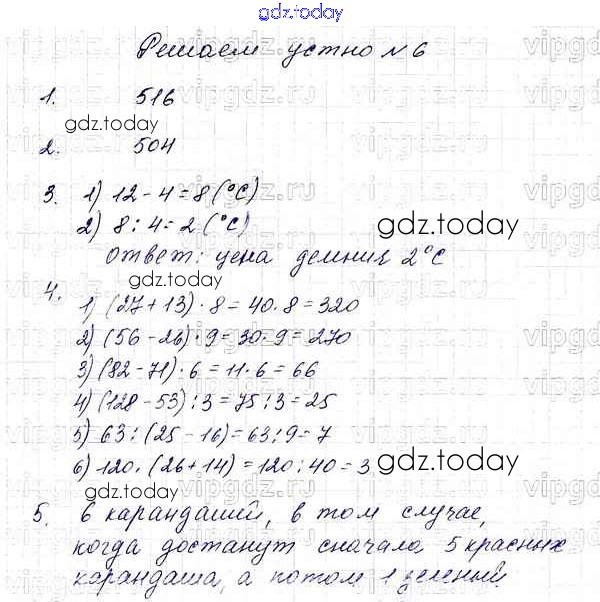 gdz.today
Решаем устно № 6
1. 516
gdz.today
2. 504
3. 1) 12 - 4 = 8 (°C)
2) 8 : 4 = 2 (°C)
gdz.today
Ответ: цена делении 2°C
gdz.today
4.
1) (27 + 13) · 8 = 40 · 8 = 320
2) (56 - 26) · 9 = 30 · 9 = 270
3) (82 - 71) · 6 = 11 · 6 = 66
4) (128 - 53) : 3 = 75 : 3 = 25
5) 63 : (25 - 16) = 63 : 9 = 7
6) 120 : (26 + 14) = 120 : 40 = 3
gdz.today
gdz.today
5. 6 карандашей, в том случае,
когда достанут сначала 5 красных
карандаша, а потом 1 зеленый.